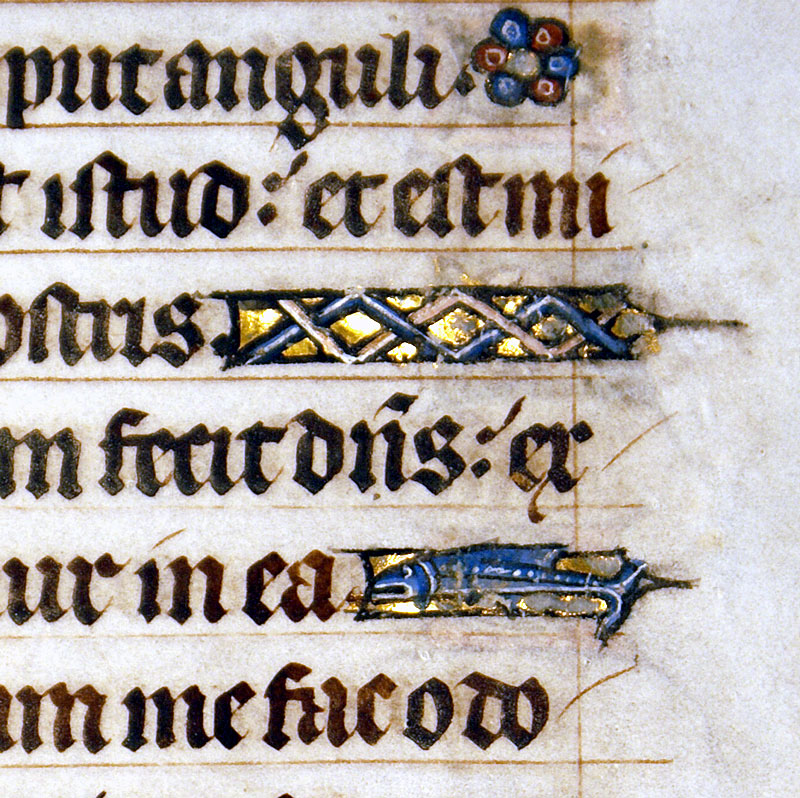 put anguli.
t istud: et est mi
ostris.
m fecit dn̄s: ex
ur in ea.
um me fac o do